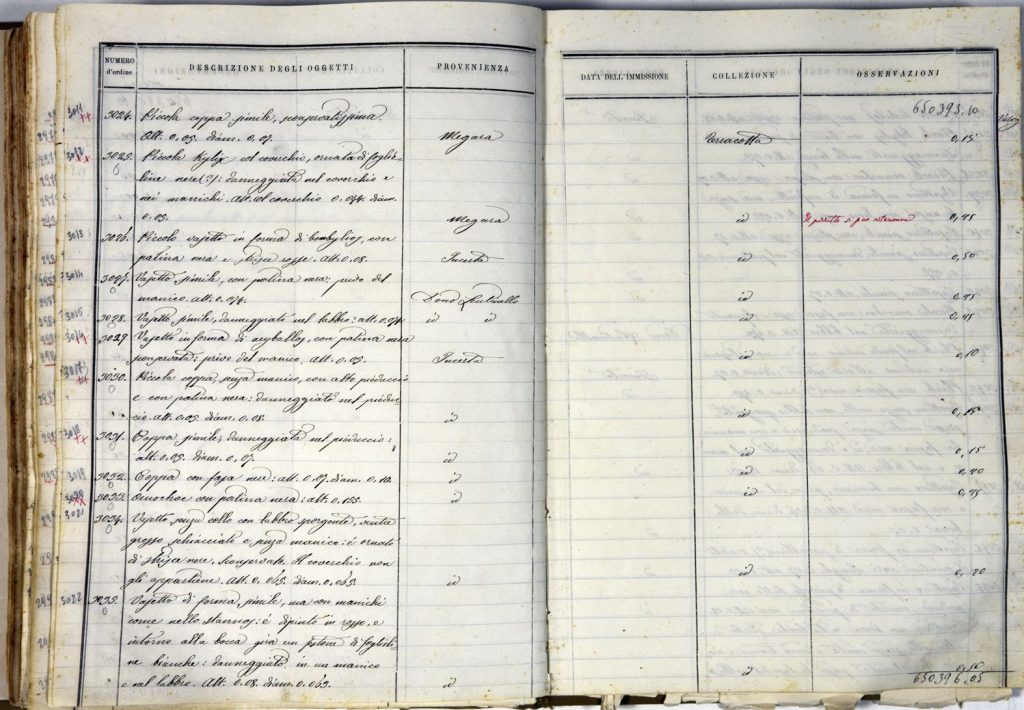 NUMERO d'ordine DESCRIZIONE DEGLI OGGETTI PROVENIENZA DATA DELL'IMMISSIONE COLLEZIONE OSSERVAZIONI
650393,10
3024. Piccola coppa simile,
Alt. 0,05. diam. 0,07. Megara Terracotta 0,15
3025. Piccola Kylix col coverchio, ornata di foglio-
line nere (?): danneggiata nel coverchio e
nei manichi. Alt. col coverchio 0,074. diam.
0,05. Megara id 0,75
3026. Piccolo vasetto in forma di bombylios, con
patina nera e strisce rosse. Alt. 0,08. Incerta id 0,50
3027. Vasetto simile, con patina nera; privo del
manico. Alt. 0,074. Dono id
3028. Vasetto simile, danneggiato nel labbro: alt. 0,074. id id id
3029 Vasetto in forma di aryballos, con patina nera
sconservata; privo del manico. Alt. 0,05. Incerta id 0,10
3030. Piccola coppa, senza manico, con alto pieduccio
e con patina nera: danneggiato nel piéduc-
cio. Alt. 0,05. diam. 0,08. id id 0,15
3031. Coppa simile, danneggiata nel pieduccio:
alt. 0,05. diam. 0,07. id id 0,15
3032. Coppa con fasce nere: alt. 0,07. diam. 0,10. id id 0,20
3033. Oenochoe con patina nera: alt. 0,155. id id
3034. Vasetto senza collo con labbro sporgente, ventre
grosso schiacciato e senza manico: è ornato
di strisce nere, sconservate. Il coverchio non
gli appartiene. Alt. 0,065. diam. 0,065. id id 0,20
3035. Vasetto di forma simile, ma con manichi
come nello stamnos: è dipinto in rosso, e
intorno alla bocca gira un festone di foglioli-
ne bianche: danneggiato in un manico
e nel labbro. Alt. 0,08. diam. 0,065. id id
650396,05
3011
3012
3013
3014
3015
3016
3017
3018
3019
3020
3021
3022